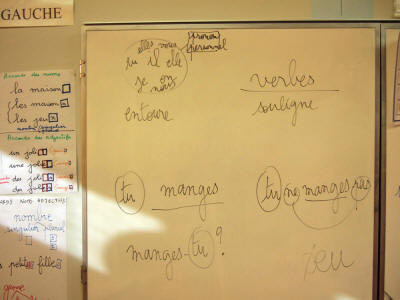 GAUCHE
Accords des noms
la maison
les maison
les jeu
nombre/singulier
Accords des adjectifs
un joli
une joli
des joli
des joli
nombre
singulier pluriel
petite fille
genre
elles vous
tu il elle
je on
nous
pronom
personnel
entoure
verbes
souligne
tu manges
tu ne manges pas
manges-tu ?
jeu